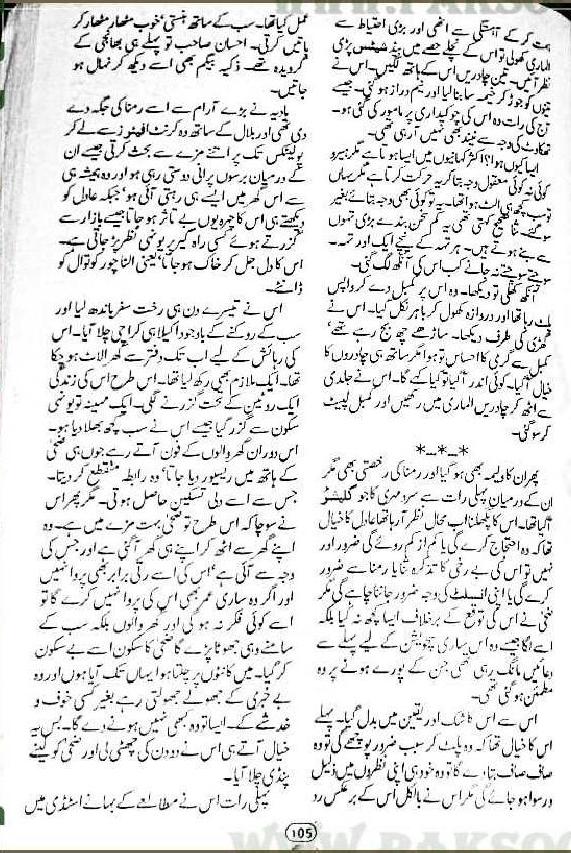 ہمت کر کے آہستگی سے اٹھی اور بڑی احتیاط سے
الماری کھولی تو اس کے نچلے حصے میں بیڈ شیٹس پڑی
نظر آئیں۔ تین چادریں اس کے ہاتھ لگیں۔ اس نے
تینوں کو جوڑ کر خیمہ سا بنا لیا اور نیم دراز ہو گئی۔ جیسے
آج کی رات وہ اس کی چوکیداری پر مامور کی گئی ہو۔
تھکاوٹ کی وجہ سے نیند بھی نہیں آ رہی تھی۔
ایسا کیوں ہوا؟ اکثر کہانیوں میں ایسا ہوتا ہے مگر ہیرو
کوئی نہ کوئی معقول وجہ بتا کر یہ حرکت کرتا ہے مگر یہاں
تو سب کچھ ہی الٹ ہوا تھا۔ یہ تو کوئی بھی وجہ بتائے بغیر
سو گئے۔ ثنا صحیح کہتی تھی یہ کم سخن بندے بڑی تہوں
سے بنے ہوتے ہیں۔ ہر تہہ کے نیچے ایک اور تہہ۔
سوچتے سوچتے نہ جانے کب اس کی آنکھ لگ گئی۔
آنکھ کھلی تو دیکھا۔ وہ اس پر کمبل دے کر واپس
پلٹ رہا تھا اور دروازہ کھول کر باہر نکل گیا۔ اس نے
گھڑی کی طرف دیکھا۔ ساڑھے چھ بج رہے تھے
کمبل سے گرمی کا احساس تو ہوا مگر ساتھ ہی چادروں کا
خیال آگیا۔ کوئی اندر آگیا تو کیا کہے گا۔ اس نے جلدی
سے اٹھ کر چادریں الماری میں رکھیں اور کمبل لپیٹ
کر سو گئی۔
*-*-*
پھر ان کا ولیمہ بھی ہو گیا اور رمنا کی رخصتی بھی مگر
ان کے درمیان پہلی رات سے سرد مہری کا جو گلیشئر
آگیا تھا۔ اس کا پگھلنا اب محال نظر آ رہا تھا عادل کا خیال
تھا کہ وہ احتجاج کرے گی یا کم از کم روئے گی ضرور اور
نہیں تو اس کی بے رخی کا تذکرہ ثنا یا رمنا سے ضرور
کرے گی یا اپنی انسلٹ کی وجہ ضرور جاننا چاہے گی مگر
ضحیٰ نے اس کی توقع کے برخلاف ایسا کچھ نہ کیا بلکہ
اسے لگا جیسے وہ اس ساری سچویشن کے لیے پہلے سے
دعائیں مانگ رہی تھی جن کے پورے ہونے پر وہ
مطمئن ہو گئی تھی۔
اس سے اس کا شک اور یقین میں بدل گیا۔ پہلے
اس کا خیال تھا کہ وہ پلٹ کر سبب ضرور پوچھے گی تو وہ
صاف صاف بتا دے گا تو وہ خود ہی اپنی نظروں میں ذلیل
و رسوا ہو جائے گی مگر اس نے بالکل اس کے برعکس رد
عمل کیا تھا۔ سب کے ساتھ ہنستی خوب مٹھار مٹھار کر
باتیں کرتی۔ احسان صاحب تو پہلے ہی بھانجی کے
گرویدہ تھے۔ ذکیہ بیگم بھی اسے دیکھ کر نہال ہو
جاتیں۔
ہادیہ نے بڑے آرام سے اسے رمنا کی جگہ دے
دی تھی اور بلال کے ساتھ وہ کرنٹ افیئرز سے لے کر
پولیٹکس تک پر اتنے مزے سے بحث کرتی جیسے ان
کے درمیان برسوں پرانی دوستی رہی ہو اور وہ ہمیشہ ہی
سے اس گھر میں ایسے ہی رہتی آئی ہو جبکہ عادل کو
دیکھتے ہی اس کا چہرہ یوں بے تاثر ہو جاتا جیسے بازار سے
گزرتے ہوئے کسی راہ گیر پر یونہی نظر پڑ جاتی ہے۔
اس کا دل جل کر خاک ہو جاتا یعنی الٹا چور کوتوال کو
ڈانٹے۔
اس نے تیسرے دن ہی رخت سفر باندھ لیا اور
سب کے روکنے کے باوجود اکیلا ہی کراچی چلا آیا۔ اس
کی رہائش کے لیے اب تک دفتر سے گھر الاٹ ہو چکا
تھا۔ ایک ملازم بھی رکھ لیا تھا۔ اس طرح اس کی زندگی
ایک روٹین کے تحت گزرنے لگی۔ ایک مہینہ تو یونہی
سکون سے گزر گیا جیسے اس نے سب کچھ بھلا دیا ہو۔
اس دوران گھر والوں کے فون آتے رہے جوں ہی ضحیٰ
کے ہاتھ میں ریسیور دیا جاتا وہ رابطہ منقطع کر دیتا۔
جس سے اسے دلی تسکین حاصل ہوتی۔ مگر پھر اس
نے سوچا کہ اس طرح تو ضحیٰ بہت مزے میں ہے۔ وہ
اپنے گھر سے اٹھ کر اپنے ہی گھر آگئی ہے اور جس کی
وجہ سے آئی ہے اس کی اسے رتی برابر بھی پروا نہیں
اور اگر وہ ساری عمر بھی اس کی پروا نہیں کرے گا تو
اسے کوئی فکر نہ ہو گی اور گھر والوں بلکہ سب کے
سامنے وہی جھوٹا پڑے گا ضحیٰ کا سکون اسے بے سکون
کر گیا۔ میں کانٹوں پر چلتا ہوا یہاں تک آیا ہوں اور وہ
بے خبری کے جھولے جھولتی رہے بغیر کسی خوف و
خدشے کے۔ ایسا تو وہ بھی نہیں ہونے دے گا۔ بس یہ
خیال آتے ہی اس نے دو دن کی چھٹی لی اور ضحیٰ کو لینے
پنڈی چلا آیا۔
پہلی رات اس نے مطالعے کے بہانے اسٹڈی میں
105
WWW.PAKSOC